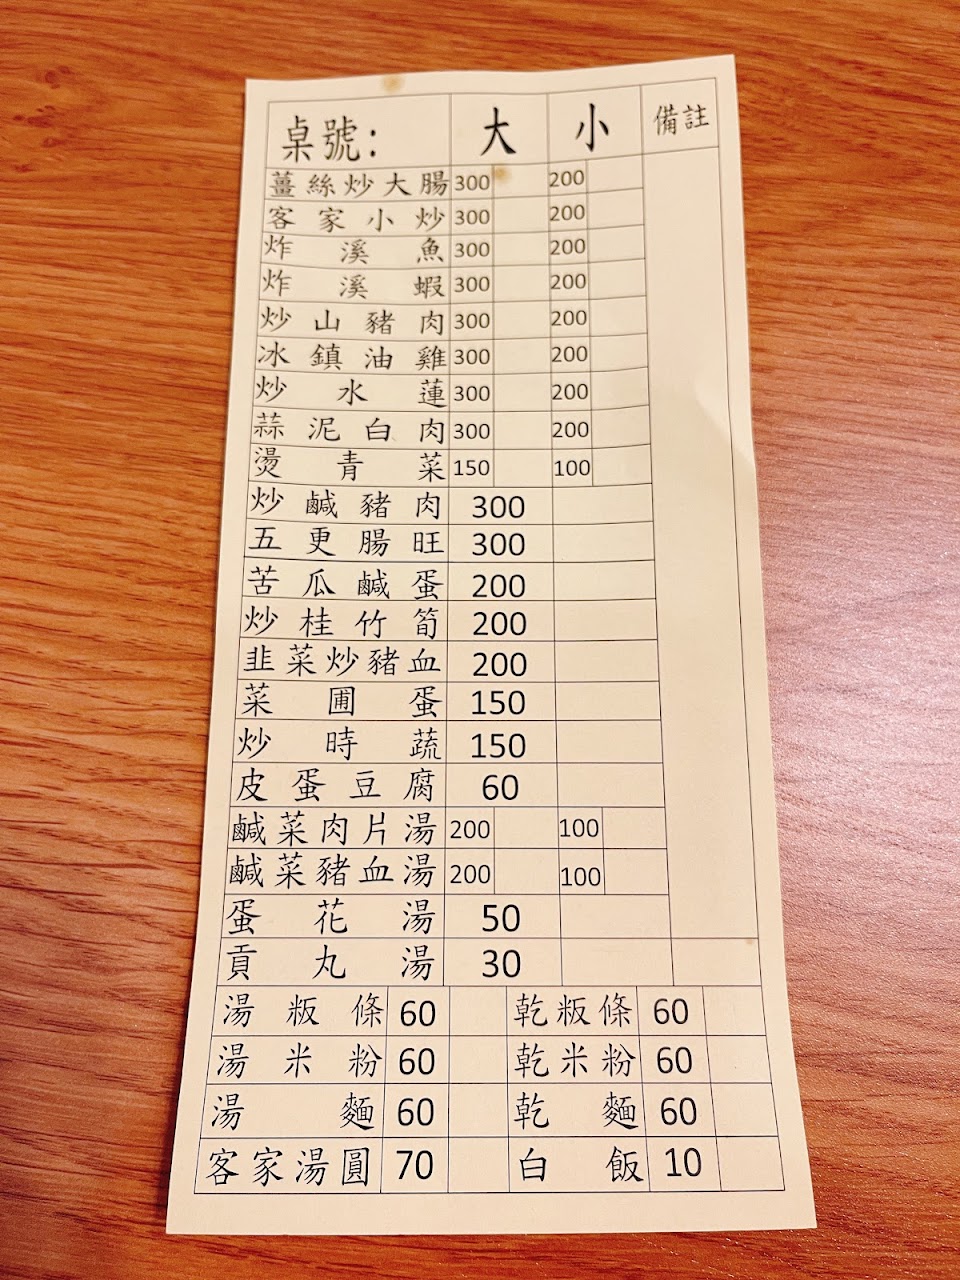 桌號: 大 小 備註
薑絲炒大腸 300 200
客家小炒 300 200
炸溪魚 300 200
炸溪蝦 300 200
炒山豬肉 300 200
冰鎮油雞 300 200
炒水蓮 300 200
蒜泥白肉 300 200
燙青菜 150 100
炒鹹豬肉 300
五更腸旺 300
苦瓜鹹蛋 200
炒桂竹筍 200
韭菜炒豬血 200
菜圃蛋 150
炒時蔬 150
皮蛋豆腐 60
鹹菜肉片湯 200 100
鹹菜豬血湯 200 100
蛋花湯 50
貢丸湯 30
湯粄條 60 乾粄條 60
湯米粉 60 乾米粉 60
湯麵 60 乾麵 60
客家湯圓 70 白飯 10